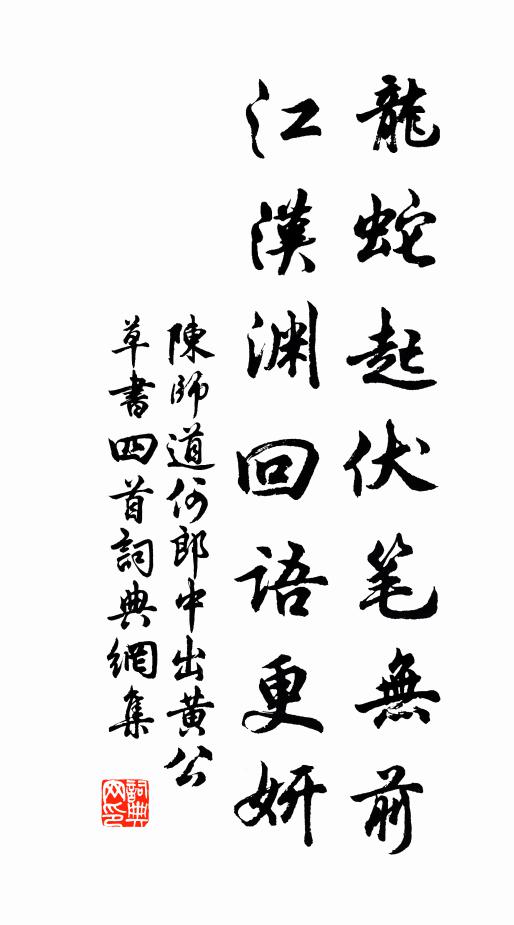 龍蛇起伏笔無前
江漢淵回語更妍
陳師道何郎中出黄公
草書四首詞典網集
詞典
网印